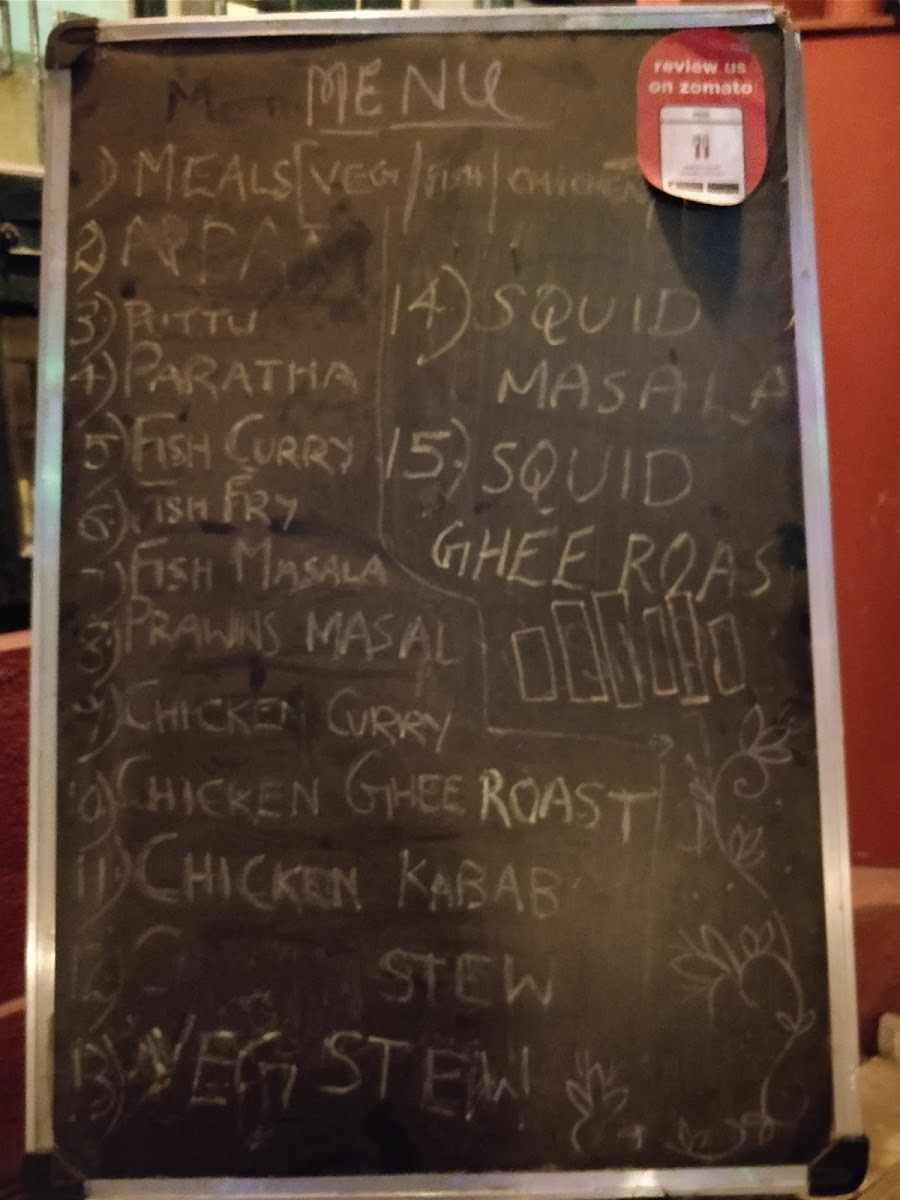 MENU
review us
on zomato
1) MEALS [VEG / FISH / CHICKEN
2)
3) PUTTU
4) PARATHA
5) FISH CURRY
6) FISH FRY
7) FISH MASALA
8) PRAWNS MASAL
9) CHICKEN CURRY
10) CHICKEN GHEE ROAST
11) CHICKEN KABAB
12) STEW
13) VEG STEW
14) SQUID
MASALA
15) SQUID
GHEE ROAS